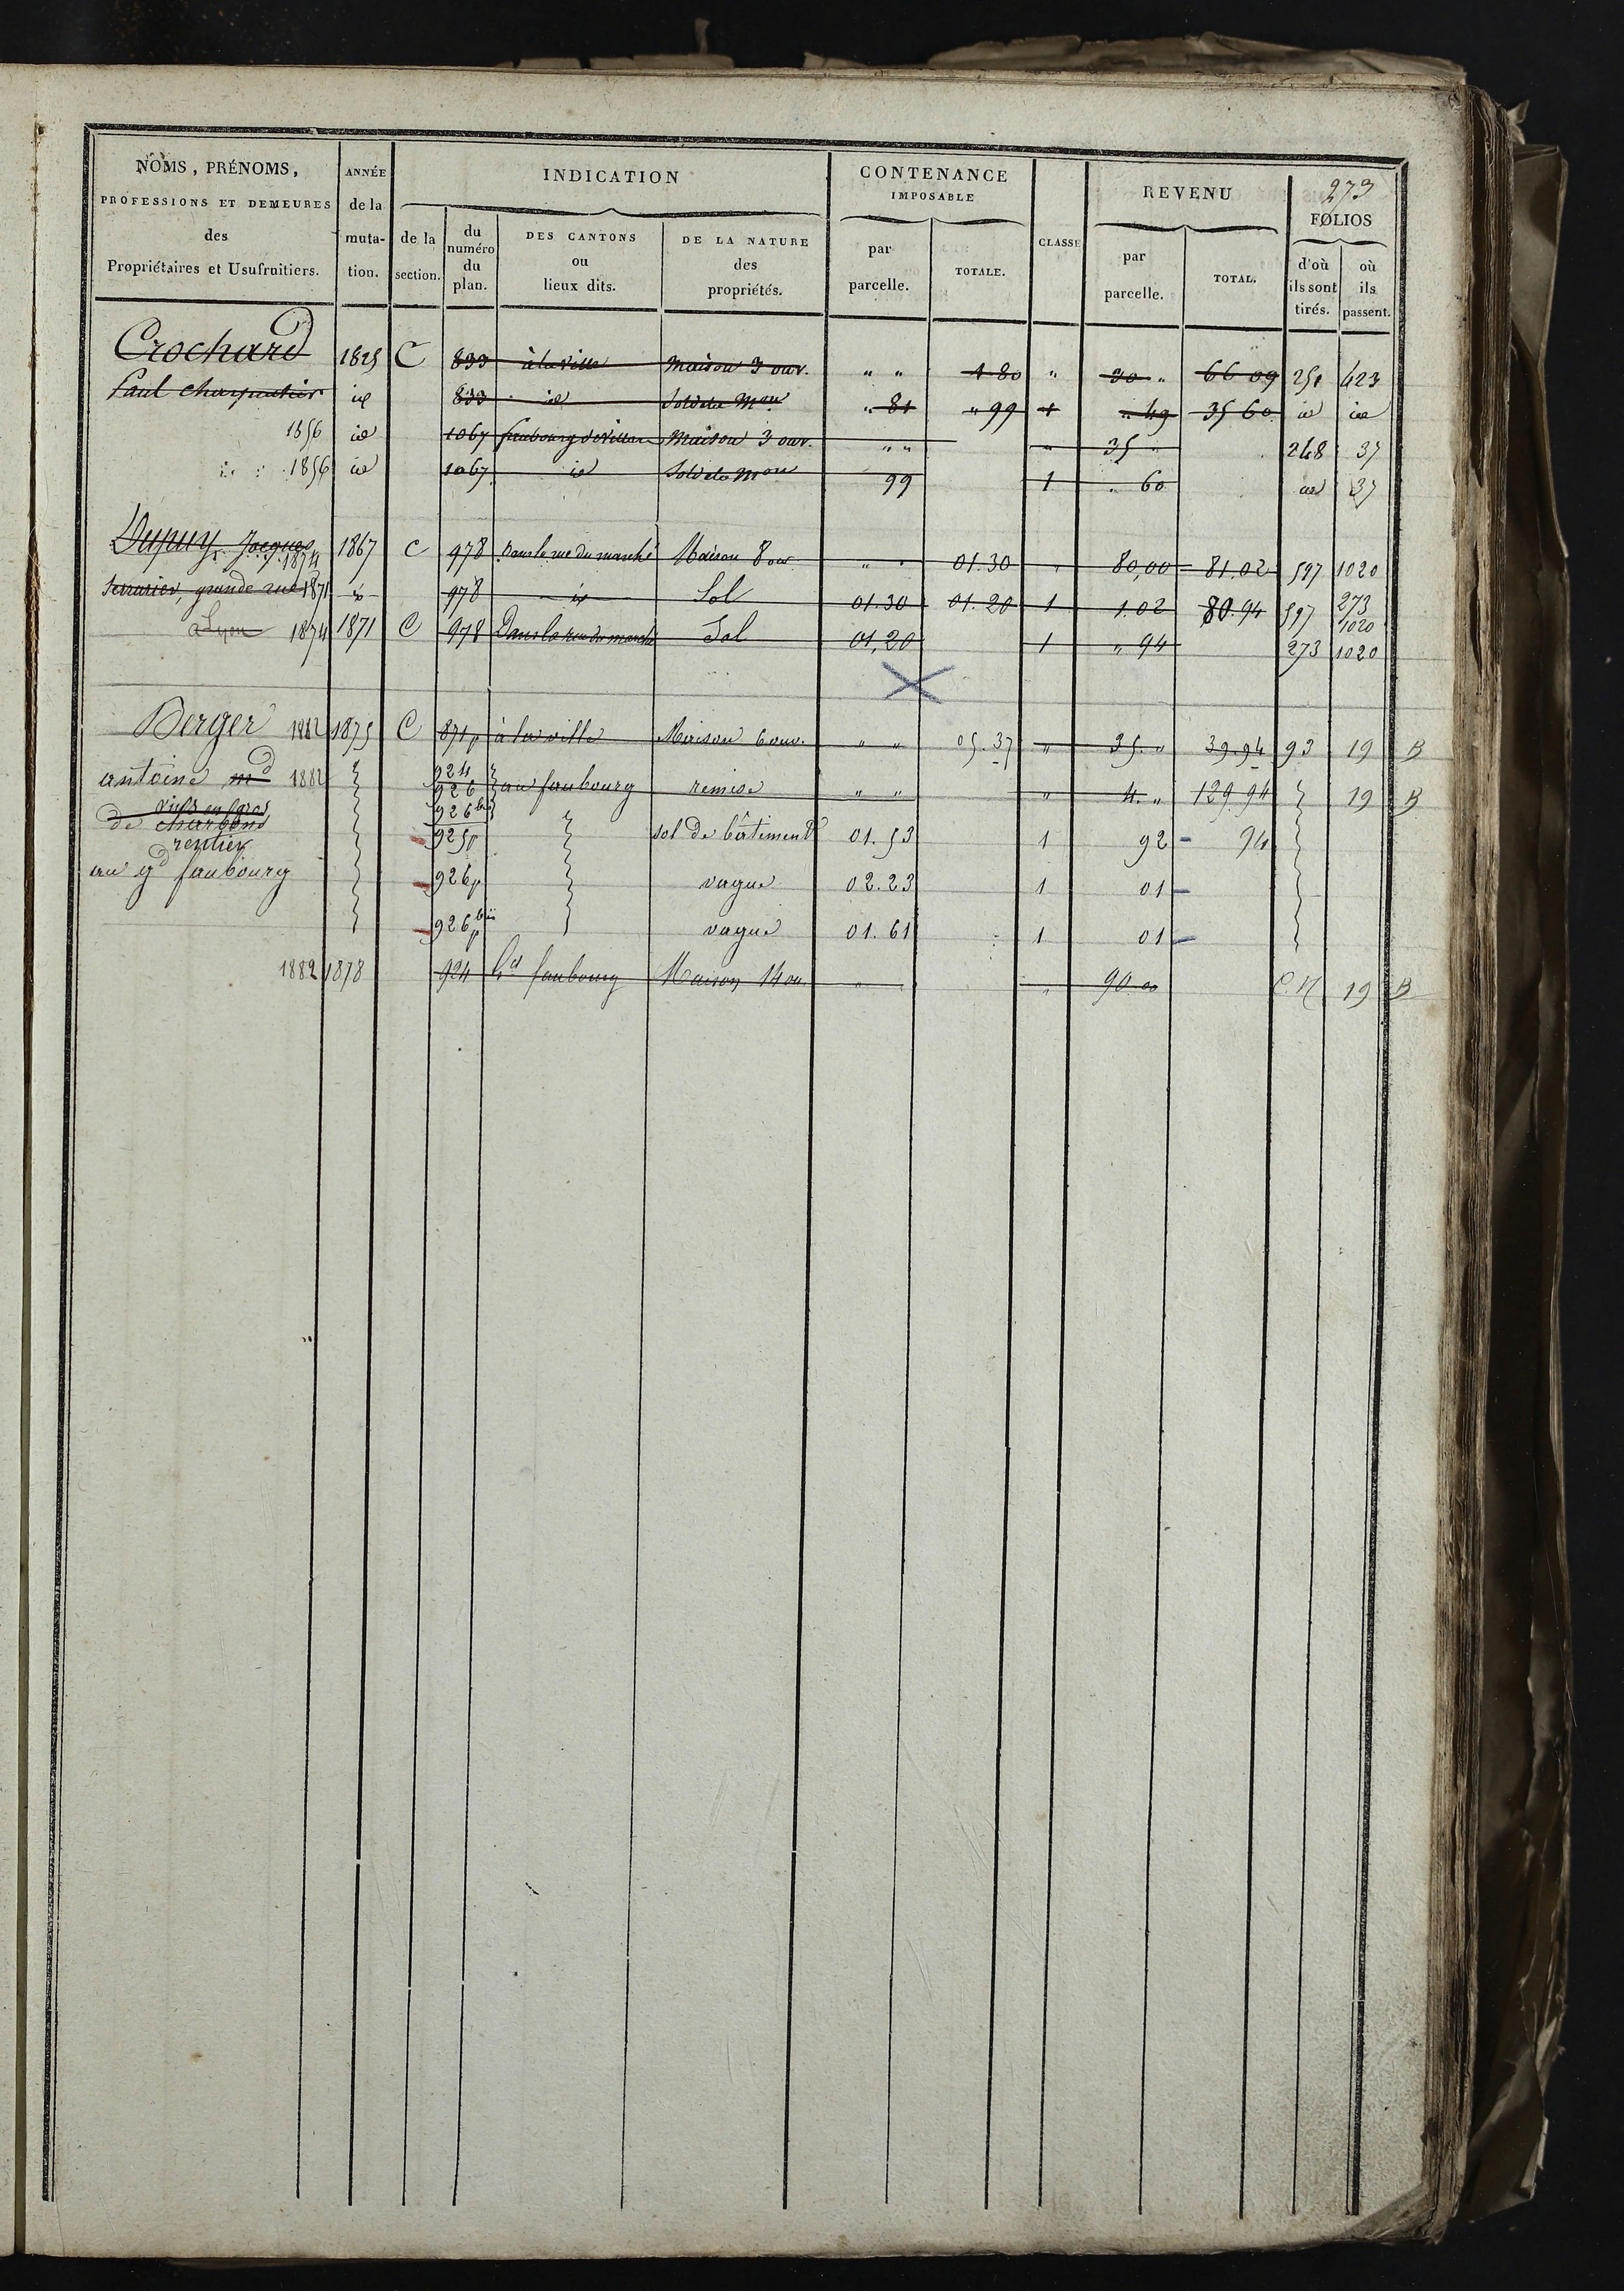 273
NOMS, PRÉNOMS, PROFESSIONS ET DEMEURES des Propriétaires et Usufruitiers.
ANNÉE de la muta-tion.
INDICATION
de la section.
du numéro du plan.
DES CANTONS ou lieux dits.
DE LA NATURE des propriétés.
CONTENANCE IMPOSABLE
par parcelle.
TOTALE.
CLASSE
REVENU
par parcelle.
TOTAL.
FOLIOS
d'où ils sont tirés.
où ils passent.
Crochard 1825 C 833 à la ville Maison 3 ouv. " " 1 80 " 30 " 66 09 251 423
Paul Charpentier id 833 id Sol de la Mon " 81 " 99 1 " 49 35 60 id id
1856 id 1067 faubourg Maison 3 ouv. " " " 35 " 248 37
1856 id 1067 id Sol de la Mon 99 1 " 60 id 37
Dupuy, Jacques 1874 1867 C 978 Dans la rue du marché Maison 8 ouv " " 01.30 " 80,00 81.02 597 1020
serrurier, grande rue 1871 id 978 id Sol 01.30 01.20 1 1.02 80.94 597 273 1020
à Lyon 1874 1871 C 978 Dans la rue du marché Sol 01,20 1 " 94 273 1020
Berger 1882 1875 C 871p à la ville Maison 6 ouv. " " 05.37 " 35. " 39.94 93 19 B
antoine md 1882 924 926 926 bis au faubourg remise " " " 4. " 129.94 19 B
vins en gros
de charbons 925p sol de bâtiment 01.53 1 92 94
rentier
au gd faubourg 926p vague 02.23 1 01
926p bis vague 01.61 1 01
1882 1878 924 Gd faubourg Maison 14 ou. " " 90.00 C.N 19 B